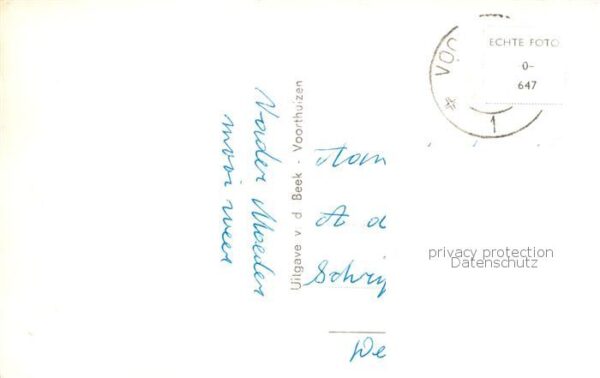 Vader Moeder
mooi weer
Uitgave v d Beek - Voorthuizen
VOO
1
ECHTE FOTO
-0-
647
Aan
A d
Schrij
De
privacy protection
Datenschutz